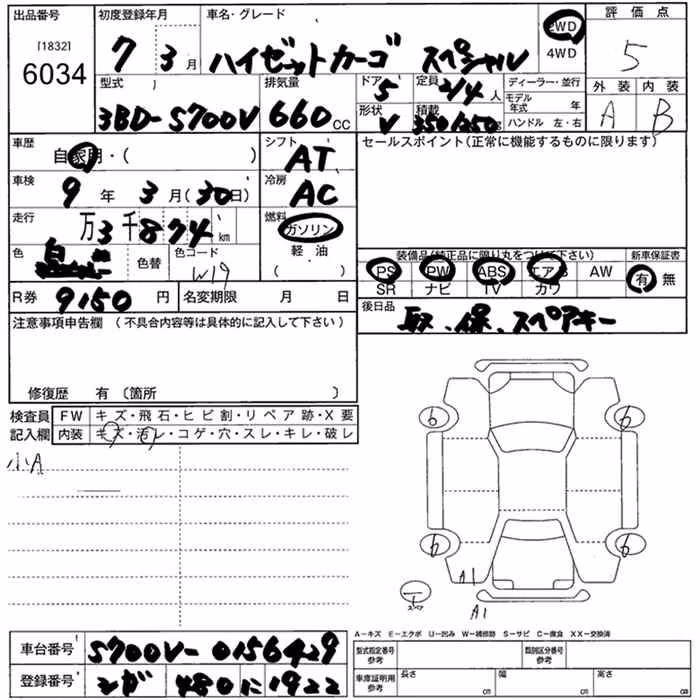 出品番号 初度登録年月 車名・グレード 2WD 評価点
[1832] 7 3月 ハイゼットカーゴ スペシャル 4WD 5
6034
型式 排気量 ドア 定員 ディーラー・並行 外装 内装
3BD-S700V 660cc 5 2/4人 モデル年式 年 A B
形状 積載 ハンドル 左・右
V 350/250
車歴 自家用・( ) シフト AT セールスポイント(正常に機能するものに限ります)
車検 9年3月(30日) 冷房 AC
走行 万3千874km 燃料 ガソリン
軽油
( )
色 色替 色コード W19
装備品(純正品に限り丸をつけて下さい) 新車保証書
PS PW ABS エアB AW 有 無
SR ナビ TV カワ
R券 9150円 名変期限 月 日 後日品 取、保、スペアキー
注意事項申告欄 (不具合内容等は具体的に記入して下さい)
修復歴 有 〔箇所 〕
検査員記入欄 FW キズ・飛石・ヒビ割・リペア跡・X要
内装 キズ・汚レ・コゲ・穴・スレ・キレ・破レ
小A
6 6
6 6
A1
スペア
A1
A-キズ E-エクボ U-凹み W-補修跡 S-サビ C-腐食 XX-交換済
車台番号 S700V-0156429 型式指定番号 参考 類別区分番号 参考
登録番号 480 に 1922 車庫証明用 参考 長さ cm 幅 cm 高さ cm